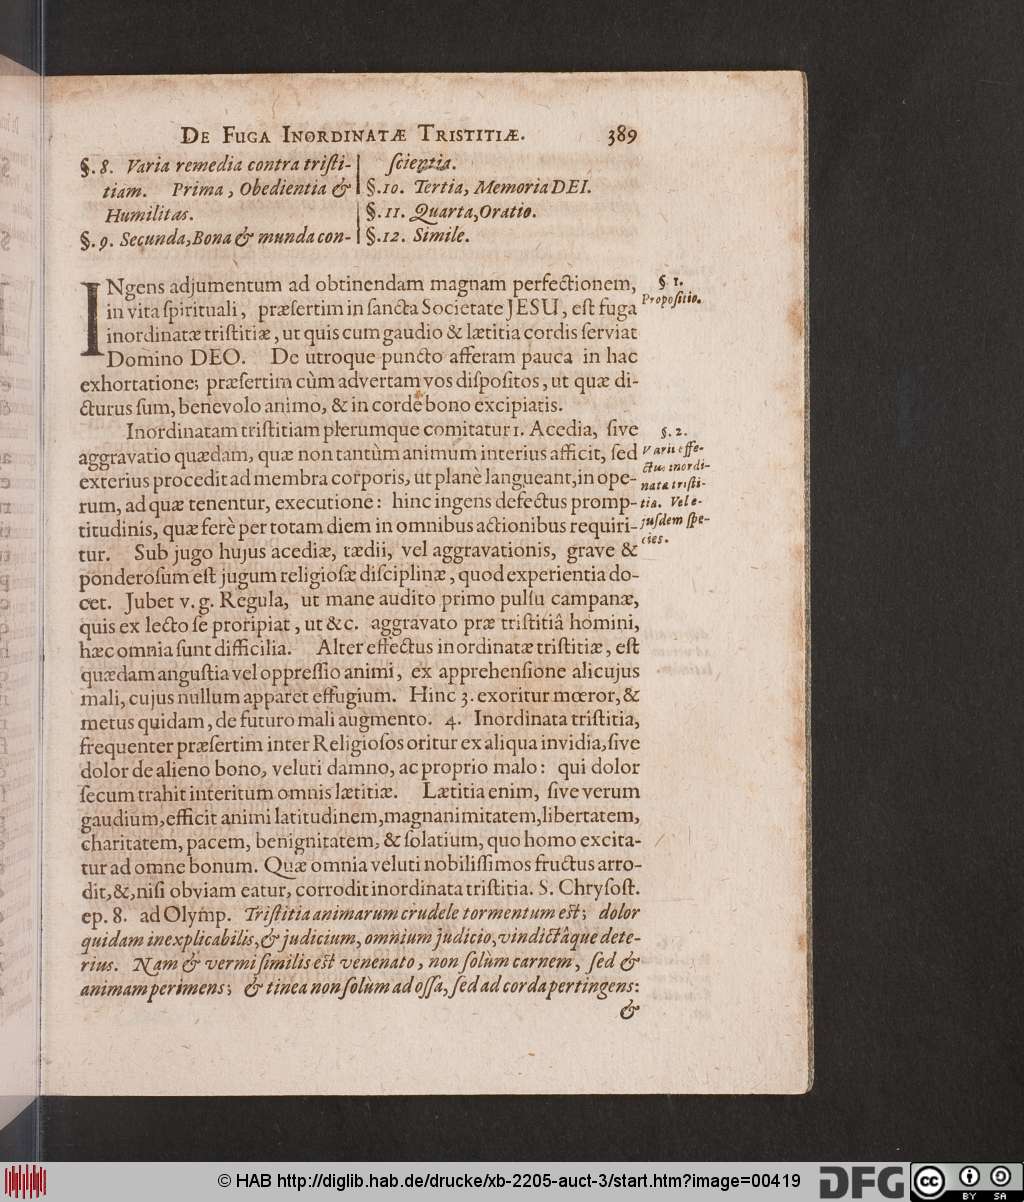 De Fuga Inordinatæ Tristitiæ. 389
§. 8. Varia remedia contra tristi-
tiam. Prima, Obedientia &
Humilitas.
§. 9. Secunda, Bona & munda con-
scientia.
§. 10. Tertia, Memoria DEI.
§. 11. Quarta, Oratio.
§. 12. Simile.
INgens adjumentum ad obtinendam magnam perfectionem,
in vita spirituali, præsertim in sancta Societate JESU, est fuga
inordinatæ tristitiæ, ut quis cum gaudio & lætitia cordis serviat
Domino DEO. De utroque puncto afferam pauca in hac
exhortatione; præsertim cùm advertam vos dispositos, ut quæ di-
cturus sum, benevolo animo, & in corde bono excipiatis.
§ 1.
Propositio.
Inordinatam tristitiam plerumque comitatur 1. Acedia, sive
aggravatio quædam, quæ non tantùm animum interius afficit, sed
exterius procedit ad membra corporis, ut planè langueant, in ope-
rum, ad quæ tenentur, executione: hinc ingens defectus promp-
titudinis, quæ ferè per totam diem in omnibus actionibus requiri-
tur. Sub jugo hujus acediæ, tædii, vel aggravationis, grave &
ponderosum est jugum religiosæ disciplinæ, quod experientia do-
cet. Jubet v. g. Regula, ut mane audito primo pulsu campanæ,
quis ex lecto se proripiat, ut &c. aggravato præ tristitiâ homini,
hæc omnia sunt difficilia. Alter effectus inordinatæ tristitiæ, est
quædam angustia vel oppressio animi, ex apprehensione alicujus
mali, cujus nullum apparet effugium. Hinc 3. exoritur mœror, &
metus quidam, de futuro mali augmento. 4. Inordinata tristitia,
frequenter præsertim inter Religiosos oritur ex aliqua invidia, sive
dolor de alieno bono, veluti damno, ac proprio malo: qui dolor
secum trahit interitum omnis lætitiæ. Lætitia enim, sive verum
gaudium, efficit animi latitudinem, magnanimitatem, libertatem,
charitatem, pacem, benignitatem, & solatium, quo homo excita-
tur ad omne bonum. Quæ omnia veluti nobilissimos fructus arro-
dit, &, nisi obviam eatur, corrodit inordinata tristitia. S. Chrysost.
ep. 8. ad Olymp. Tristitia animarum crudele tormentum est; dolor
quidam inexplicabilis, & judicium, omnium judicio, vindictâque dete-
rius. Nam & vermi similis est venenato, non solùm carnem, sed &
animam perimens; & tinea non solùm ad ossa, sed ad corda pertingens:
&
§. 2.
Varii effe-
ctus inordi-
natæ tristi-
tiæ. Vel e-
jusdem spe-
cies.
© HAB http://diglib.hab.de/drucke/xb-2205-auct-3/start.htm?image=00419
DFG
cc
BY SA